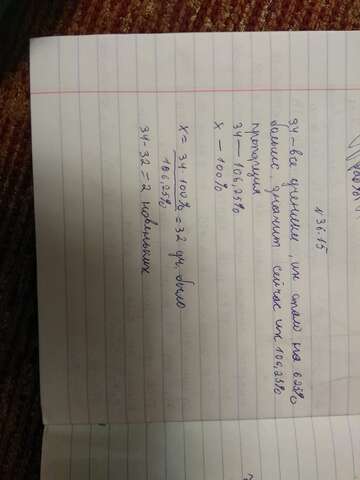 №36.15
34 - все ученики, их стало на 6.25%
больше, значит сейчас их 106,25%
пропорция
34 — 106,25%
x — 100%
x = 34·100% / 106,25% = 32 уч. было
34-32=2 новеньких